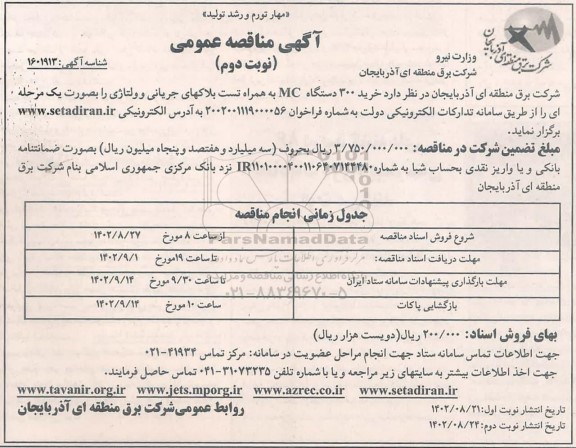 «مهار تورم و رشد تولید»
آگهی مناقصه عمومی
(نوبت دوم)
شناسه آگهی: ۱۶۰۱۹۱۳
شرکت برق منطقه ای آذربایجان
وزارت نیرو
شرکت برق منطقه ای آذربایجان
شرکت برق منطقه ای آذربایجان در نظر دارد خرید ۳۰۰ دستگاه MC به همراه تست بلاکهای جریانی و ولتاژی را بصورت یک مرحله
ای را از طریق سامانه تدارکات الکترونیکی دولت به شماره فراخوان ۲۰۰۲۰۰۱۱۱۹۰۰۰۰۵۶ به آدرس الکترونیکی www.setadiran.ir
برگزار نماید.
مبلغ تضمین شرکت در مناقصه: ۳/۷۵۰/۰۰۰/۰۰۰ ریال بحروف (سه میلیارد و هفتصد و پنجاه میلیون ریال) بصورت ضمانتنامه
بانکی و یا واریز نقدی بحساب شبا به شماره نزد بانک مرکزی جمهوری اسلامی بنام شرکت برق
منطقه ای آذربایجان
جدول زمانی انجام مناقصه
شروع فروش اسناد مناقصه از ساعت ۸ مورخ ۱۴۰۲/۸/۲۷
مهلت دریافت اسناد مناقصه: تا ساعت ۱۹ مورخ ۱۴۰۲/۹/۱
مهلت بارگذاری پیشنهادات سامانه ستاد ایران تا ساعت ۹/۳۰ مورخ ۱۴۰۲/۹/۱۴
بازگشایی پاکات ساعت ۱۰ مورخ ۱۴۰۲/۹/۱۴
ParsNamadData
۰۲۱-۸۸۳۴۹۶۷۰-۵
بهای فروش اسناد: ۲۰۰/۰۰۰ ریال (دویست هزار ریال)
جهت اطلاعات تماس سامانه ستاد جهت انجام مراحل عضویت در سامانه: مرکز تماس ۴۱۹۳۴-۰۲۱
جهت اخذ اطلاعات بیشتر به سایتهای زیر مراجعه و یا با شماره تلفن ۳۱۰۷۳۲۳۵-۰۴۱ تماس حاصل فرمایند.
www.tavanir.org.ir www.jets.mporg.ir www.azrec.co.ir www.setadiran.ir
تاریخ انتشار نوبت اول: ۱۴۰۲/۰۸/۲۱
تاریخ انتشار نوبت دوم: ۱۴۰۲/۰۸/۲۴
روابط عمومی شرکت برق منطقه ای آذربایجان